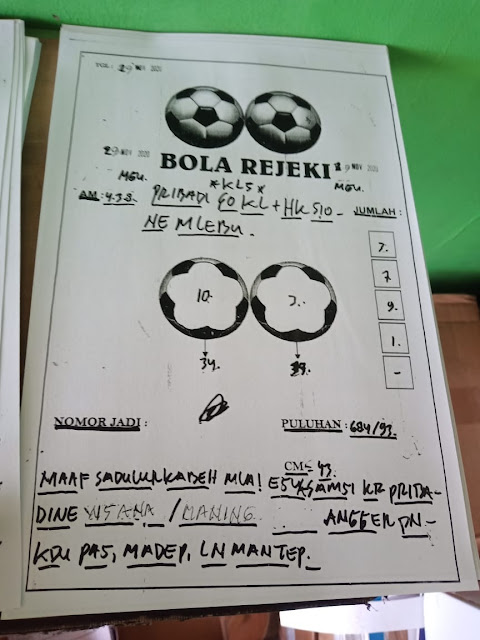 TGL : 29 NOV 2020
29 NOV 2020
BOLA REJEKI
29 NOV 2020
MGU.
*KLS*
MGU.
AM : 4.3.8.
PRIBADI GO KL + HK SIO-
JUMLAH :
NE MLEBU.
7.
7
9.
1.
-
10.
7.
34.
39.
NOMOR JADI :
PULUHAN : 684/93.
CM = 43.
MAAF SADULUR KABEH MULAI ESUK
KR PRIBA-
DINE WSANA / MANING
ANGGER DN-
KDU PAS, MADEP, LN MANTEP.